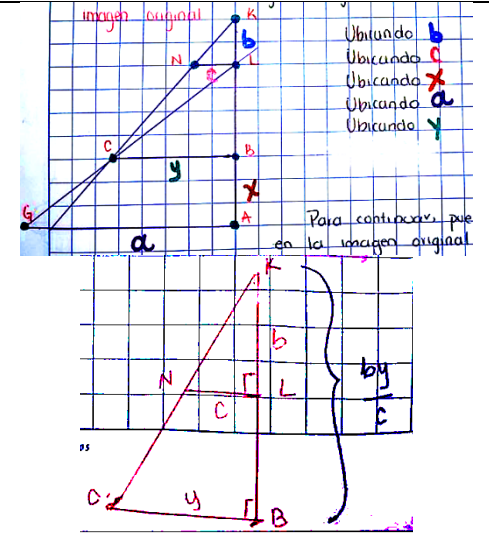 imagen original
K
b
N
L
c
C
B
y
x
G
A
a
Ubicando b
Ubicando c
Ubicando x
Ubicando a
Ubicando y
Para continuar, pue
en la imagen original
K
b
N
L
C
by
c
os
C
y
B